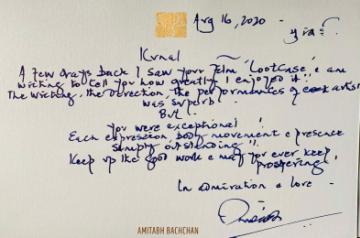 Aug 16, 2020 -
Kunal
A few days back I saw your film 'Lootcase', & am
writing to tell you how greatly I enjoyed it!!
The writing, the direction, the performances of each artist
was superb!
But ..
you were exceptional!
Each expression, body movement & presence
simply outstanding!!
Keep up the good work & may you ever keep
prospering!
In admiration & love -
AMITABH BACHCHAN